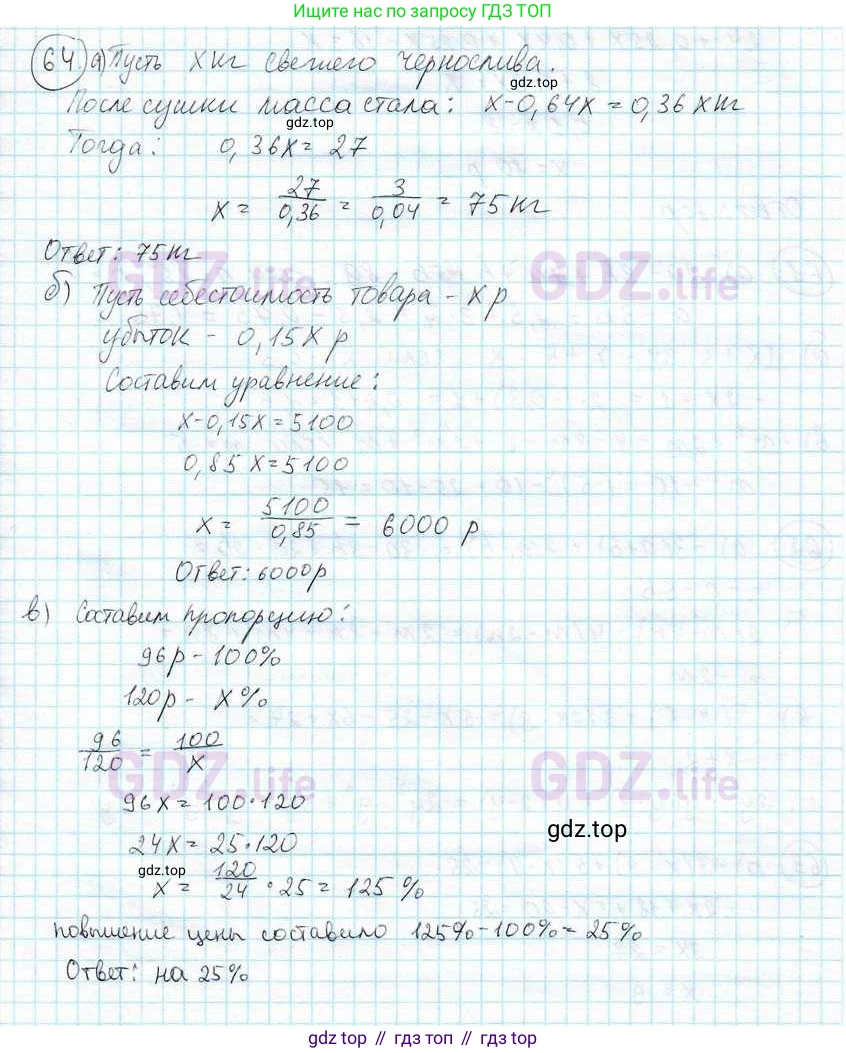 Ищите нас по запросу ГДЗ ТОП
64. а) Пусть x кг свежего чернослива.
gdz.top
После сушки масса стала: x-0,64x=0,36x кг
gdz.top
Тогда: 0,36x=27
x = 27/0,36 = 3/0,04 = 75 кг
Ответ: 75 кг
GDZ.life GDZ.life
б) Пусть себестоимость товара - x р
убыток - 0,15x р
Составим уравнение:
x-0,15x=5100
0,85x=5100
x = 5100/0,85 = 6000 р
Ответ: 6000р
в) Составим пропорцию:
96р - 100%
120р - x%
96/120 = 100/x
GDZ.life GDZ.life
96x=100·120
gdz.top
24x=25·120
gdz.top
x= 120/24 · 25 = 125 %
повышение цены составило 125%-100%=25%
Ответ: на 25%
gdz.top // гдз топ // гдз.top